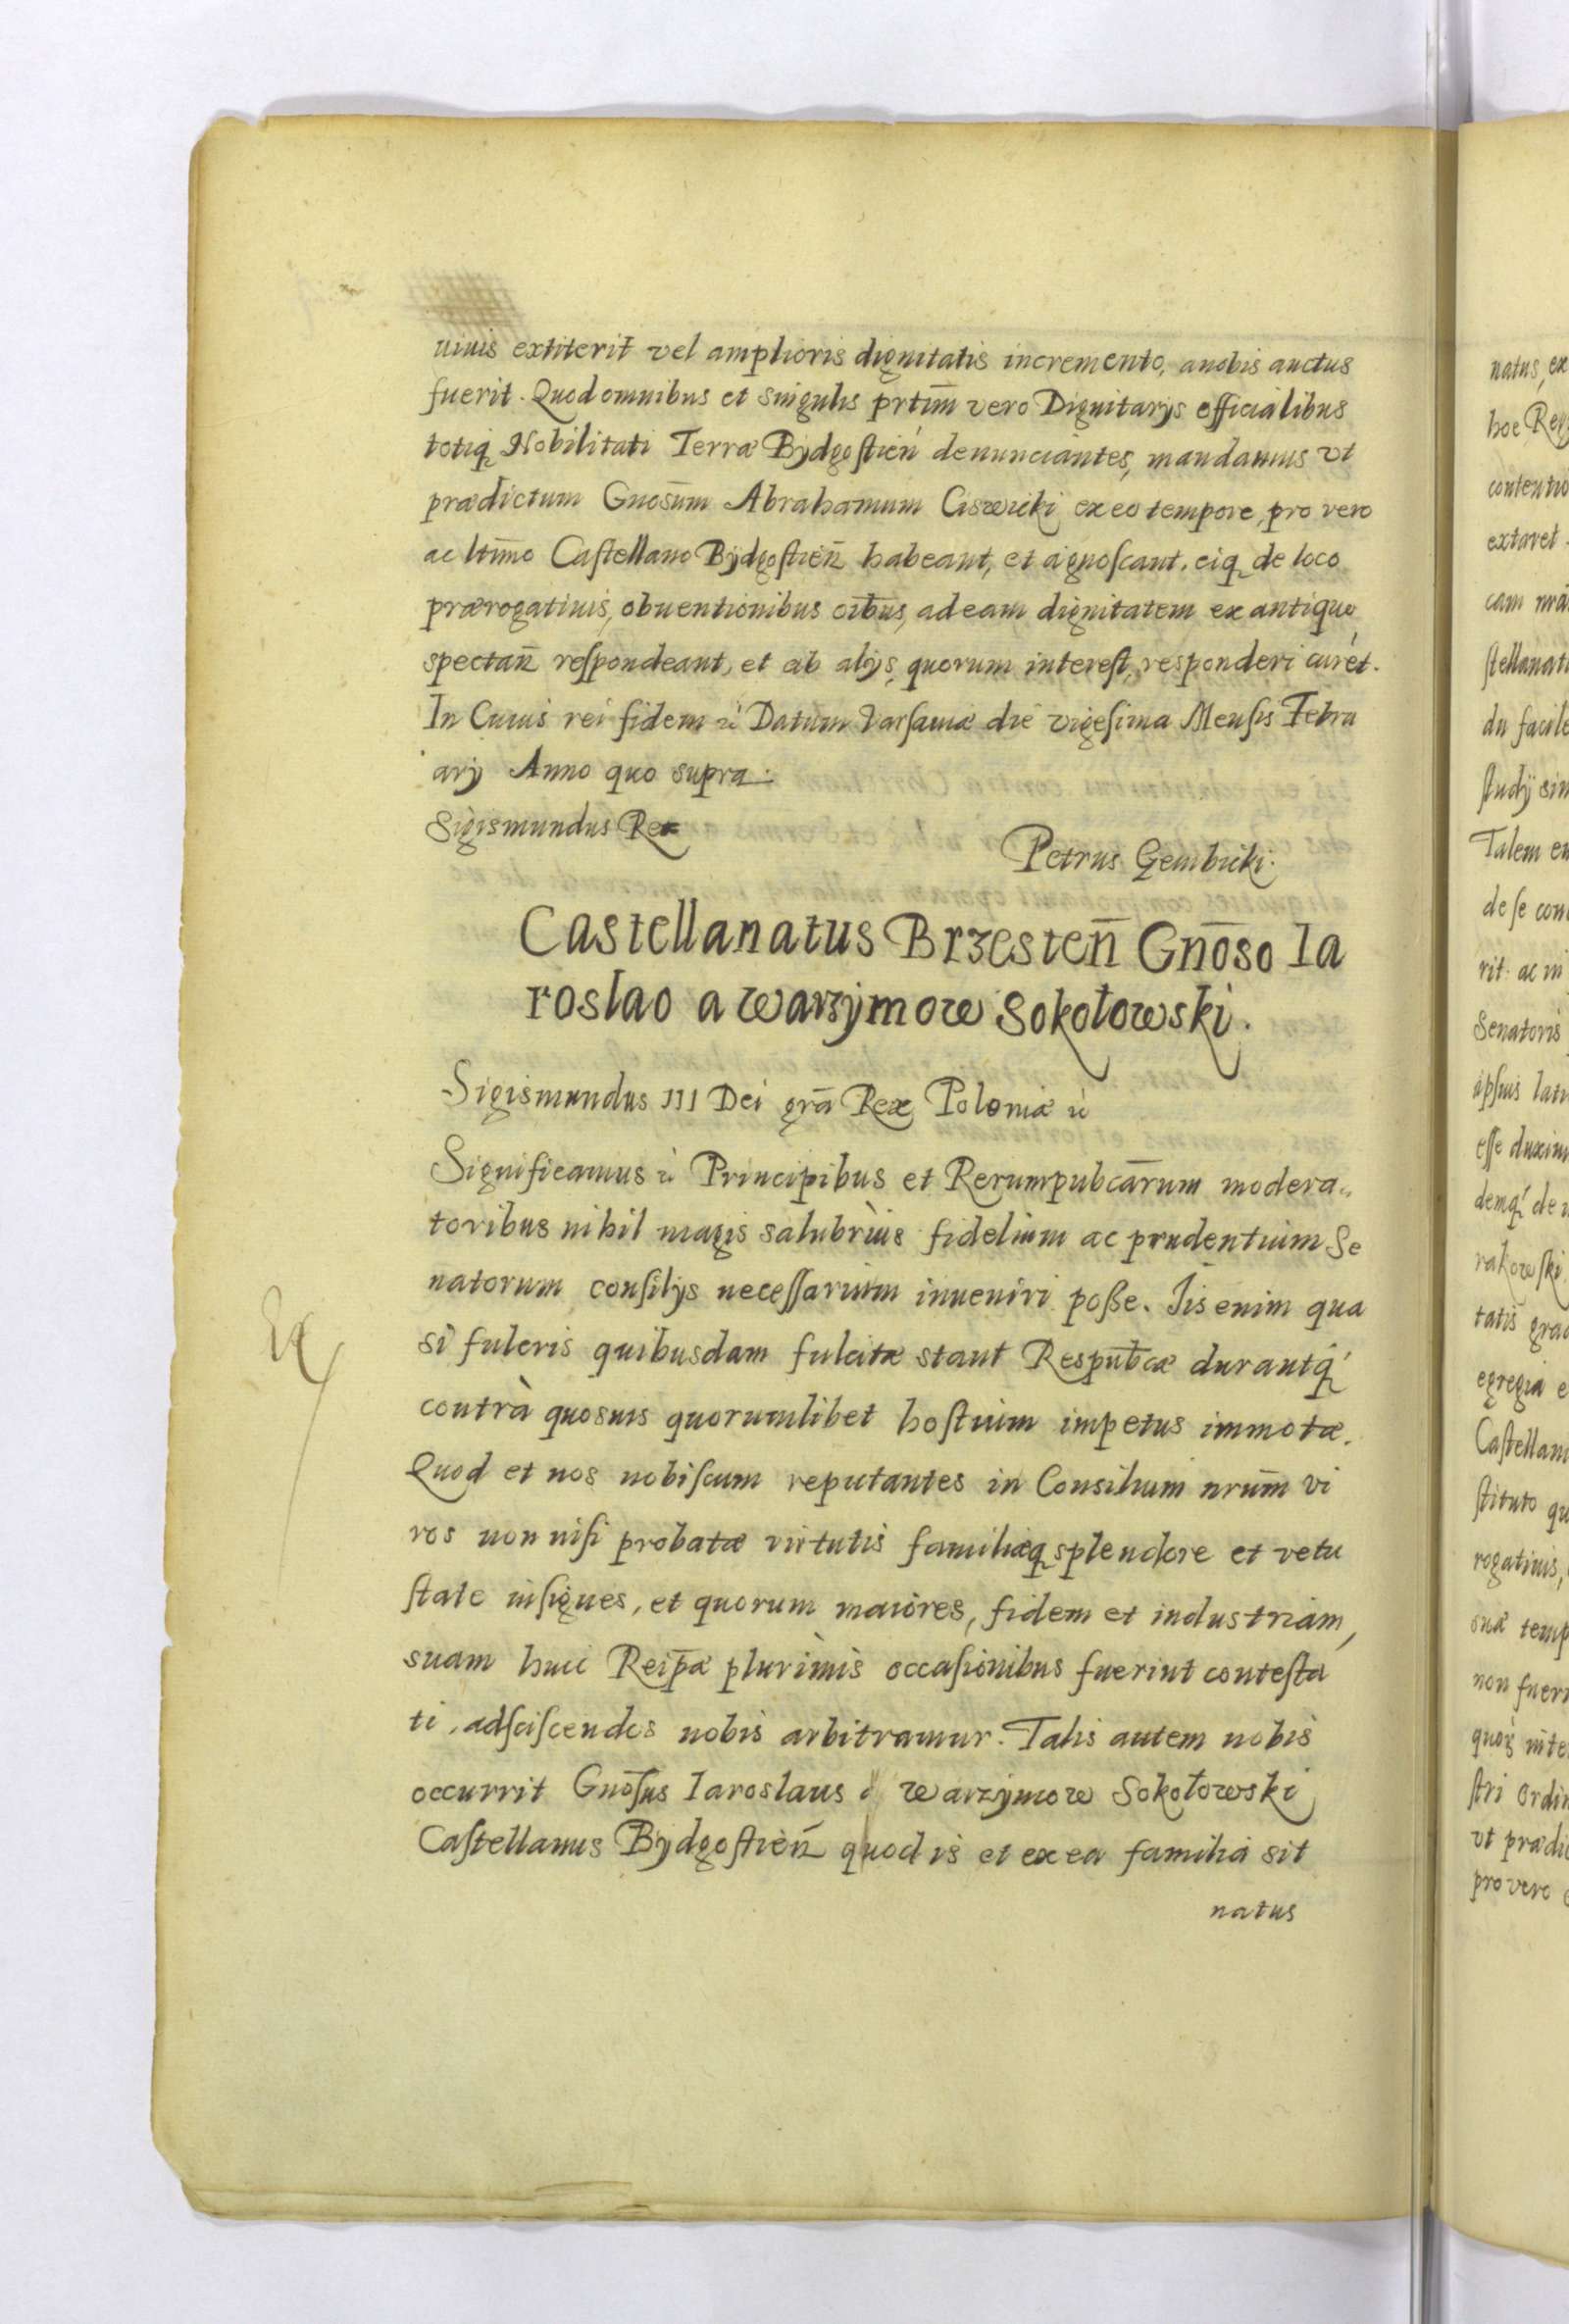 uiuis extiterit vel amplioris dignitatis incremento, a nobis auctus
fuerit. Quod omnibus et singulis prtim̄ vero Dignitarijs officialibus
totiq; Nobilitati Terræ Bÿdgostień denunciantes, mandamus vt
prædictum Gnosūm Abrahamum Ciswicki ex eo tempore, pro vero
ac ltīmo Castellano Bÿdgostień habeant, et agnoscant. eiq; de loco
prærogatiuis, obuentionibus oībus, ad eam dignitatem ex antiquo
spectan̄ respondeant, et ab alijs, quorum interest, responderi curēt.
In Cuius rei fidem ꝛc Datum Varsauiæ die vigesima Mensis Febru
arij Anno quo supra.
Sigismundus Rex
Petrus Gembicki.
Castellanatus Brzesten̄ Gnōso Ia
roslao a Warzÿmow Sokołowski.
Sigismundus III Dei grā Rex Poloniæ ꝛc
Significamus ꝛc Principibus et Rerumpubcārum modera„
toribus nihil magis salubriùs fidelium ac prudentium Se
natorum consilijs necessarium inueniri poße. Iis enim qua
si fulcris quibusdam fulcitæ stant Respub̄cæ durantq;
contrà quosuis quorumlibet hostium impetus immotæ.
Quod et nos nobiscum reputantes in Consilium nrūm vi
ros non nisi probatæ virtutis familiæq; splendore et vetu
state insignes, et quorum maiores, fidem et industriam,
suam huic Reip̄æ plurimis occasionibus fuerint contesta
ti, adsciscendos nobis arbitramur. Talis autem nobis
occurrit Gnōsus Iaroslaus à Warzÿmow Sokołowski
Castellanus Bÿdgostień quod is et ex ea familia sit
natus
natus, ex
hoc Reg
contentio
extaret
cam nrā
stellanat
du facile
studÿ sin
Talem en
de se con
rit. ac in
Senatoris
ipsius lat
esse duxim
demq; de
rakowski
tatis grad
egregia e
Castellan
stituto qu
rogatiuis,
onæ temp
non fuer
quos inte
stri ordin
vt prædic
pro vero